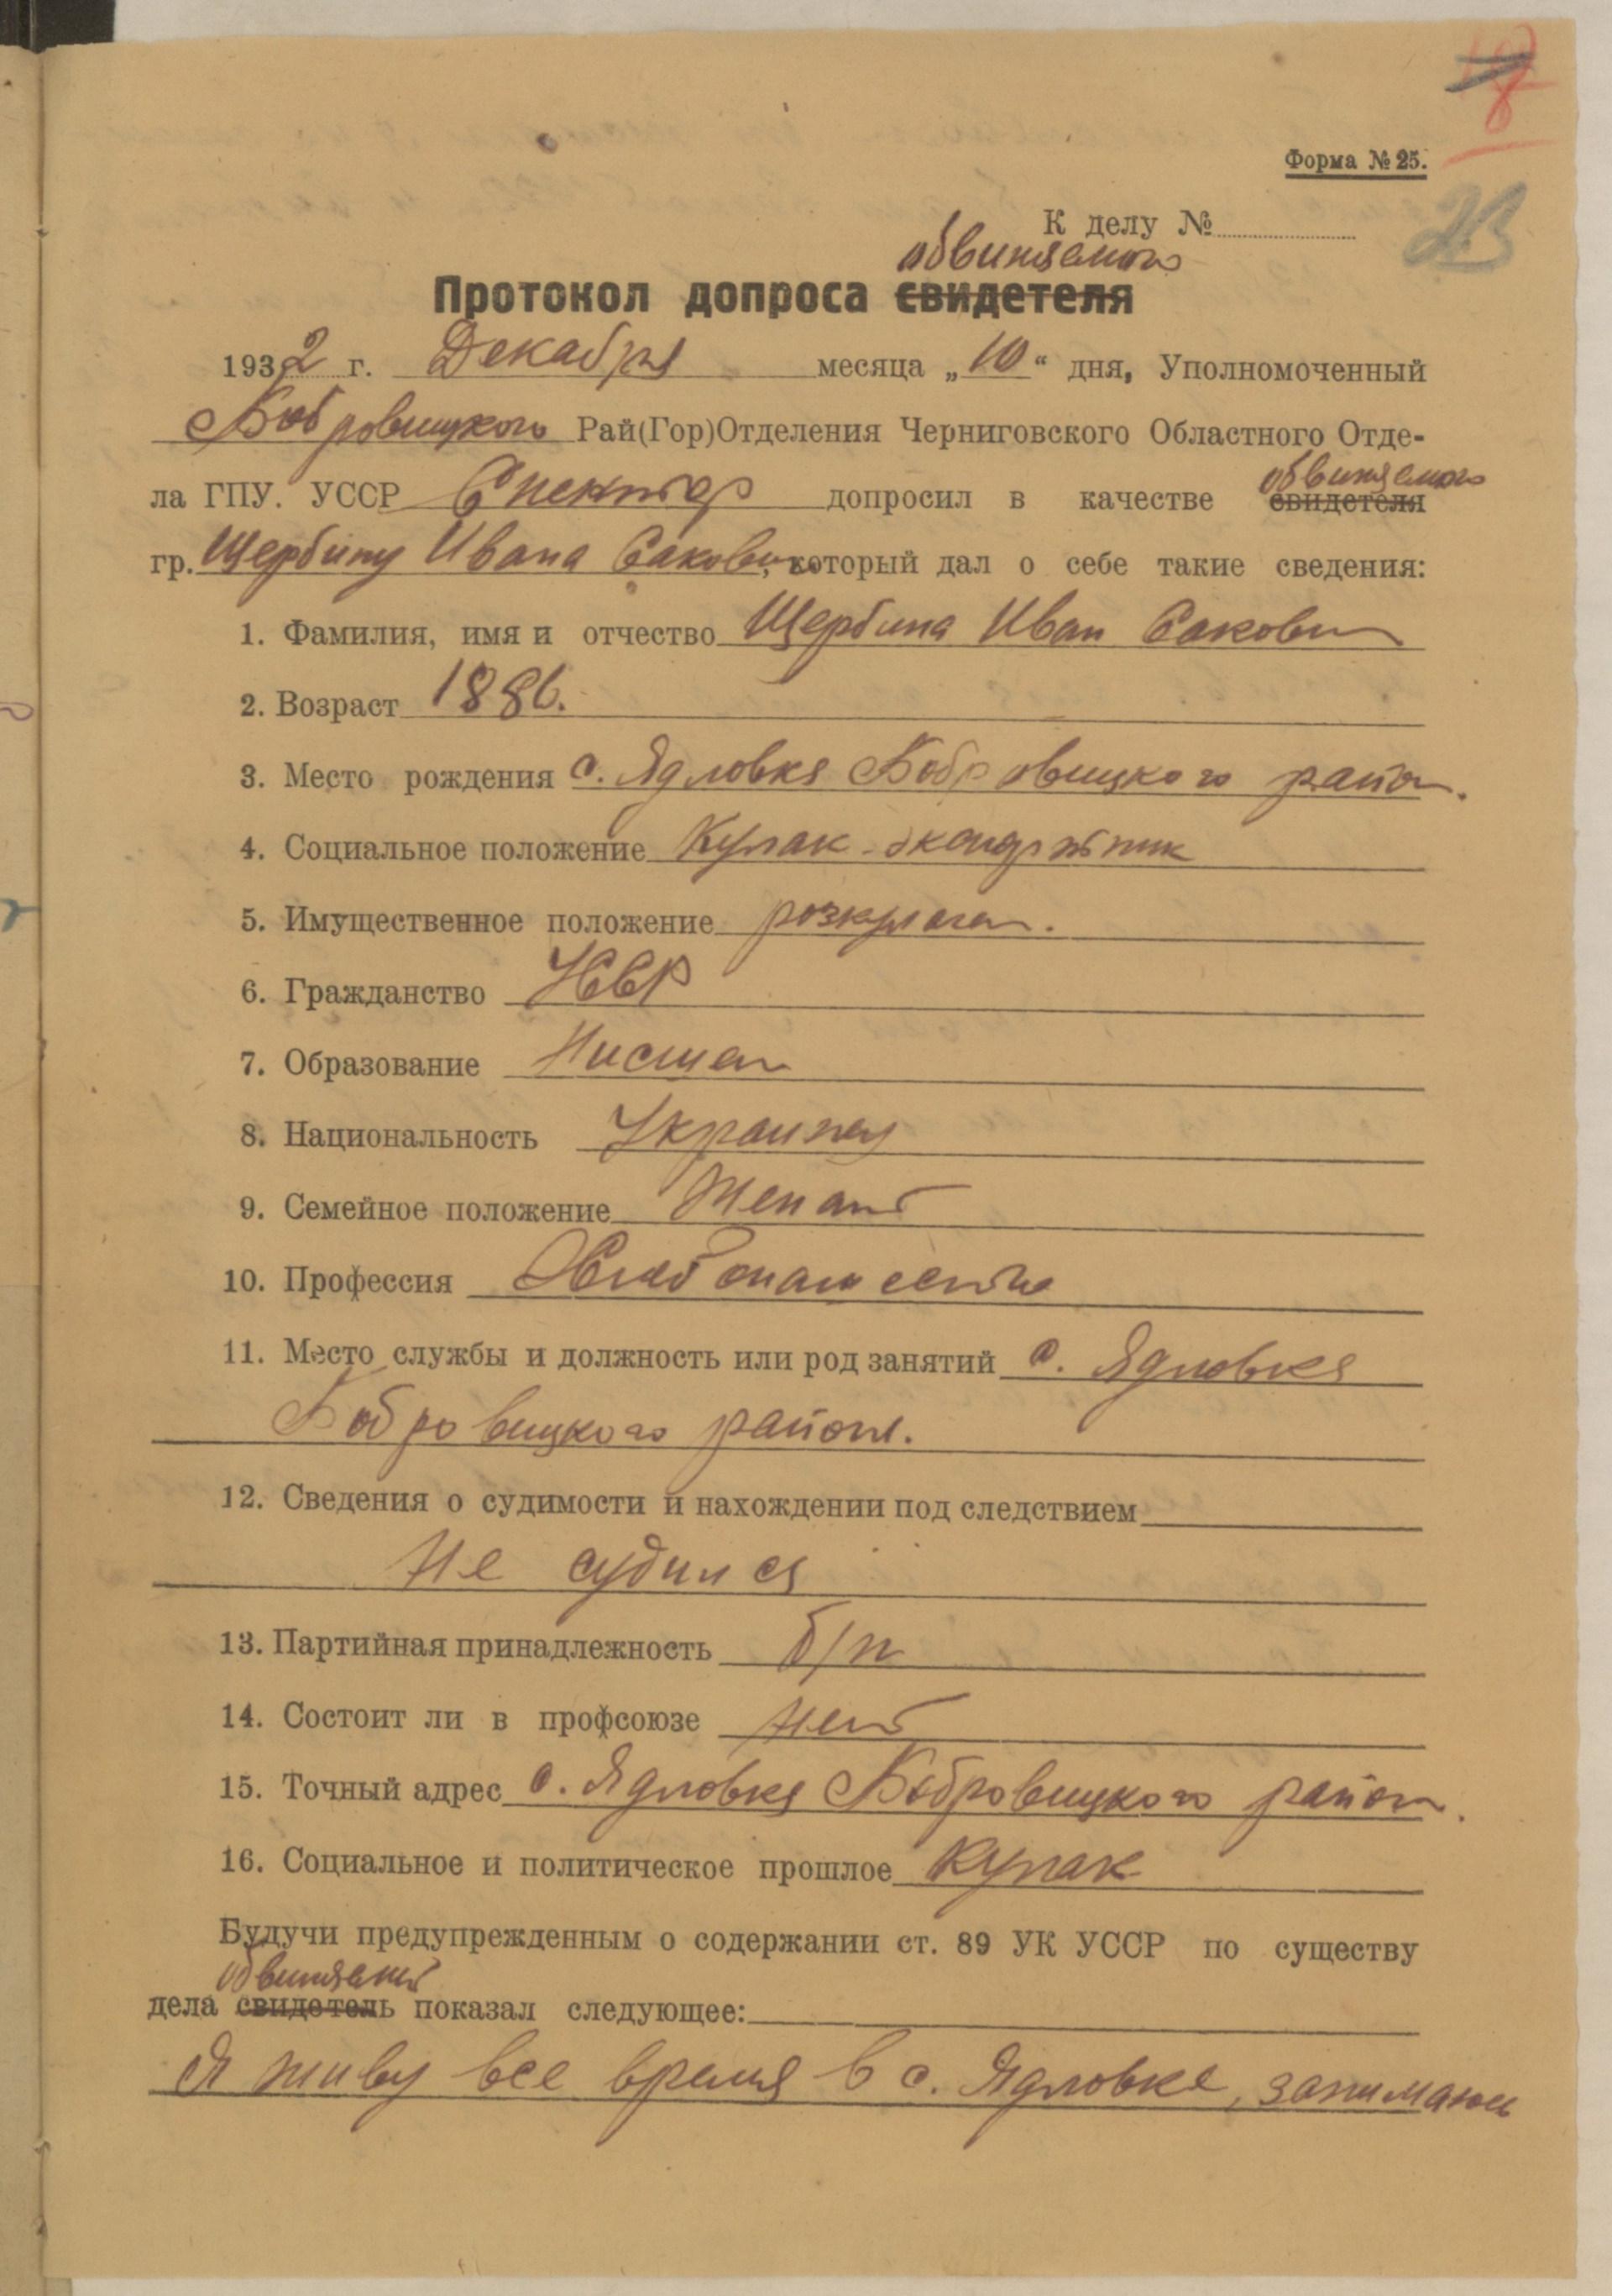 8
Форма № 25.
23
К делу №
обвиняемого
Протокол допроса свидетеля
1932 г. Декабря месяца „10“ дня, Уполномоченный
Бобровицкого Рай(Гор)Отделения Черниговского Областного Отде-
ла ГПУ. УССР Спектор допросил в качестве свидетеля
обвиняемого
гр. Щербину Ивана Сакович, который дал о себе такие сведения:
1. Фамилия, имя и отчество Щербина Иван Сакович
2. Возраст 1886.
3. Место рождения с. Ядловка Бобровицкого район.
4. Социальное положение Кулак-экспертник
5. Имущественное положение розкулачен.
6. Гражданство УССР
7. Образование Нисшее
8. Национальность Украинец
9. Семейное положение Женат
10. Профессия Хлебопашество
11. Место службы и должность или род занятий с. Ядловка
Бобровицкого района.
12. Сведения о судимости и нахождении под следствием
Не судился
13. Партийная принадлежность б/п
14. Состоит ли в профсоюзе нет
15. Точный адрес с. Ядловка Бобровицкого район.
16. Социальное и политическое прошлое Кулак
Будучи предупрежденным о содержании ст. 89 УК УССР по существу
обвиняемый
дела свидетель показал следующее:
Я живу все время в с. Ядловке, занимаюсь